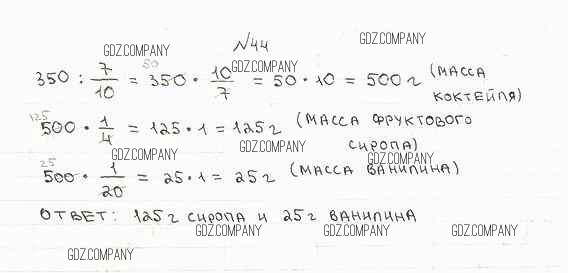 №44
GDZ.COMPANY GDZ.COMPANY
350 : 7/10 = 350 50 · 10/7 = 50 · 10 = 500 г (МАССА
GDZ.COMPANY
КОКТЕЙЛЯ)
500 125 · 1/4 = 125 · 1 = 125 г (МАССА ФРУКТОВОГО
СИРОПА)
GDZ.COMPANY GDZ.COMPANY GDZ.COMPANY
500 25 · 1/20 = 25 · 1 = 25 г (МАССА ВАНИЛИНА)
ОТВЕТ: 125 г СИРОПА И 25 г ВАНИЛИНА
GDZ.COMPANY GDZ.COMPANY GDZ.COMPANY
GDZ.COMPANY